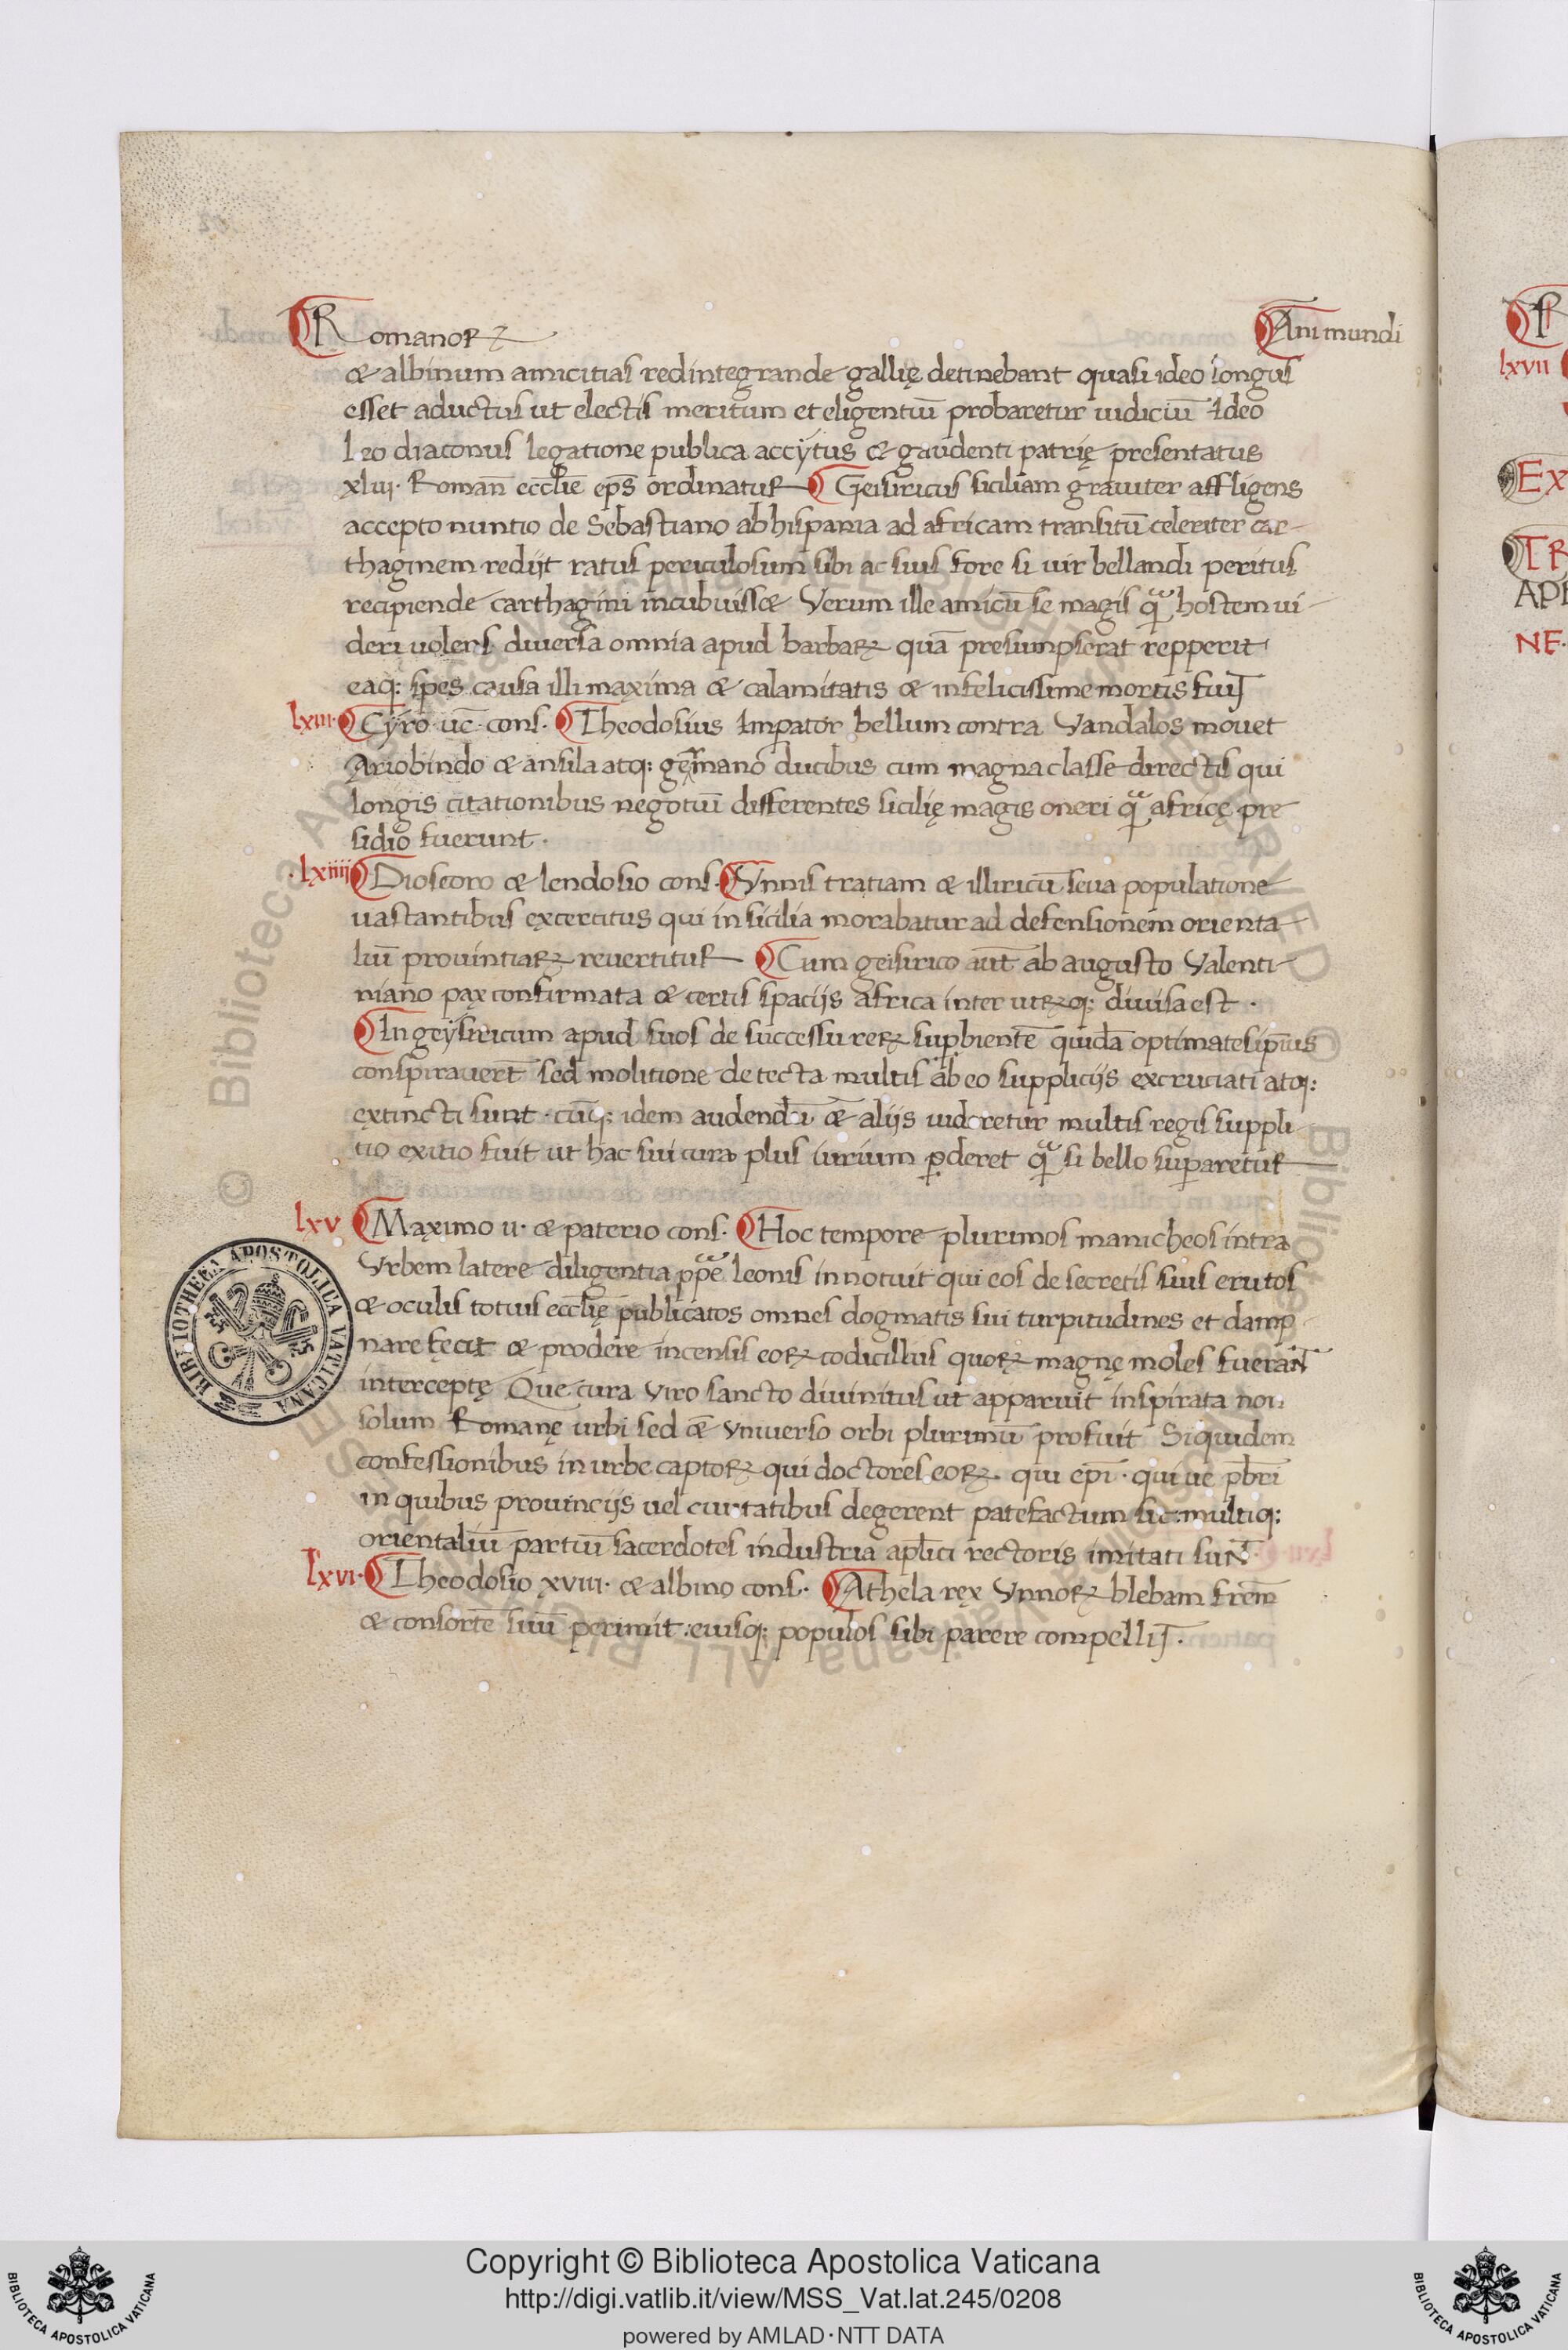 Romanoꝝ
Ani mundi
& albinum amicitias redintegrande gallię detinebant quasi ideo longus
esset aductus ut electis meritum et eligentiū probaretur iudiciū Ideo
Leo diaconus legatione publica accytus & gaudenti patrię presentatus
xliii· Romañ eccl̄ie ep̄s ordinatur Geisiricus siciliam graviter affligens
accepto nuntio de Sebastiano ab hispania ad africam transitū celeriter car-
thaginem redijt ratus periculosum sibi ac suis fore si uir bellandi peritus
recipiende carthagini incubuiss& Verum ille amicū se magis q̣ͣ hostem ui-
deri uolens diuersa omnia apud barbaꝝ quā presumpserat repperit
eaq: spes causa illi maxima & calamitatis & infelicissime mortis fuit
lxiii· Cyro uc̄ cons· Theodosius Imꝑator bellum contra Vandalos mouet
Ariobindo & ansila atq: germano ducibus cum magna classe directis qui
longis citationibus negotiū differentes sicilię magis oneri q̣ͣ africę pre
sidio fuerunt·
·lxiiii Dioscoro & lendosio cons· Vnnis tratiam & illiricū seua populatione
uastantibus excertitus qui in sicilia morabatur ad defensionem orienta-
liū prouintiaꝝ reuertitur Cum geisirico aūt ab augusto Valenti-
niano pax confirmata & certis spacijs africa inter utrꝝq: diuisa est·
In geysiricum apud suos de successu reꝝ suꝑbientē quidā optimates ip̄ius
conspirauert̄ sed molitione detecta multis ab eo supplicijs excruciati atq:
extincti sunt· cūq: idem audendū &̄ alijs uideretur multis regis suppli
tio exitio fuit ut hac sui cura plus iurium ꝑderet q̣ͣ si bello suꝑaretur
lxv Maximo ii· & paterio cons· Hoc tempore plurimos manicheos intra
Vrbem latere diligentia pp̄e leonis innotuit qui eos de secretis suis erutos
& oculis totius eccl̄ię publicatos omnes dogmatis sui turpitudines et damp
nare fecit & prodere incensis eoꝝ codicillus quoꝝ magnę moles fuerant
interceptę Que cura viro sancto diuinitus ut apparuit inspirata non
solum Romanę urbi sed &̄ vniuerso orbi plurimū profuit Siquidem
confessionibus in urbe captoꝝ qui doctores eoꝝ· qui ep̄i· qui ue pb̄ri
in quibus prouincijs uel ciuitatibus degerent patefactum sit: multiq:
orientaliū partiū sacerdotes industria apl̄ici rectoris imitati sunt·
lxvi· Theodosio xviii· & albino cons· Athela rex Vnnoꝝ blebam frem̄
& consortē suū perimit: eiusq: populos sibi parere compellit·
BIBLIOTHECA APOSTOLICA VATICANA
lxvii
EX
TR
NE·
© Biblioteca Apostolica Vaticana ALL RIGHTS RESERVED
Copyright © Biblioteca Apostolica Vaticana
http://digi.vatlib.it/view/MSS_Vat.lat.245/0208
powered by AMLAD·NTT DATA
BIBLIOTECA APOSTOLICA VATICANA
BIBLIOTECA APOSTOLICA VATICANA